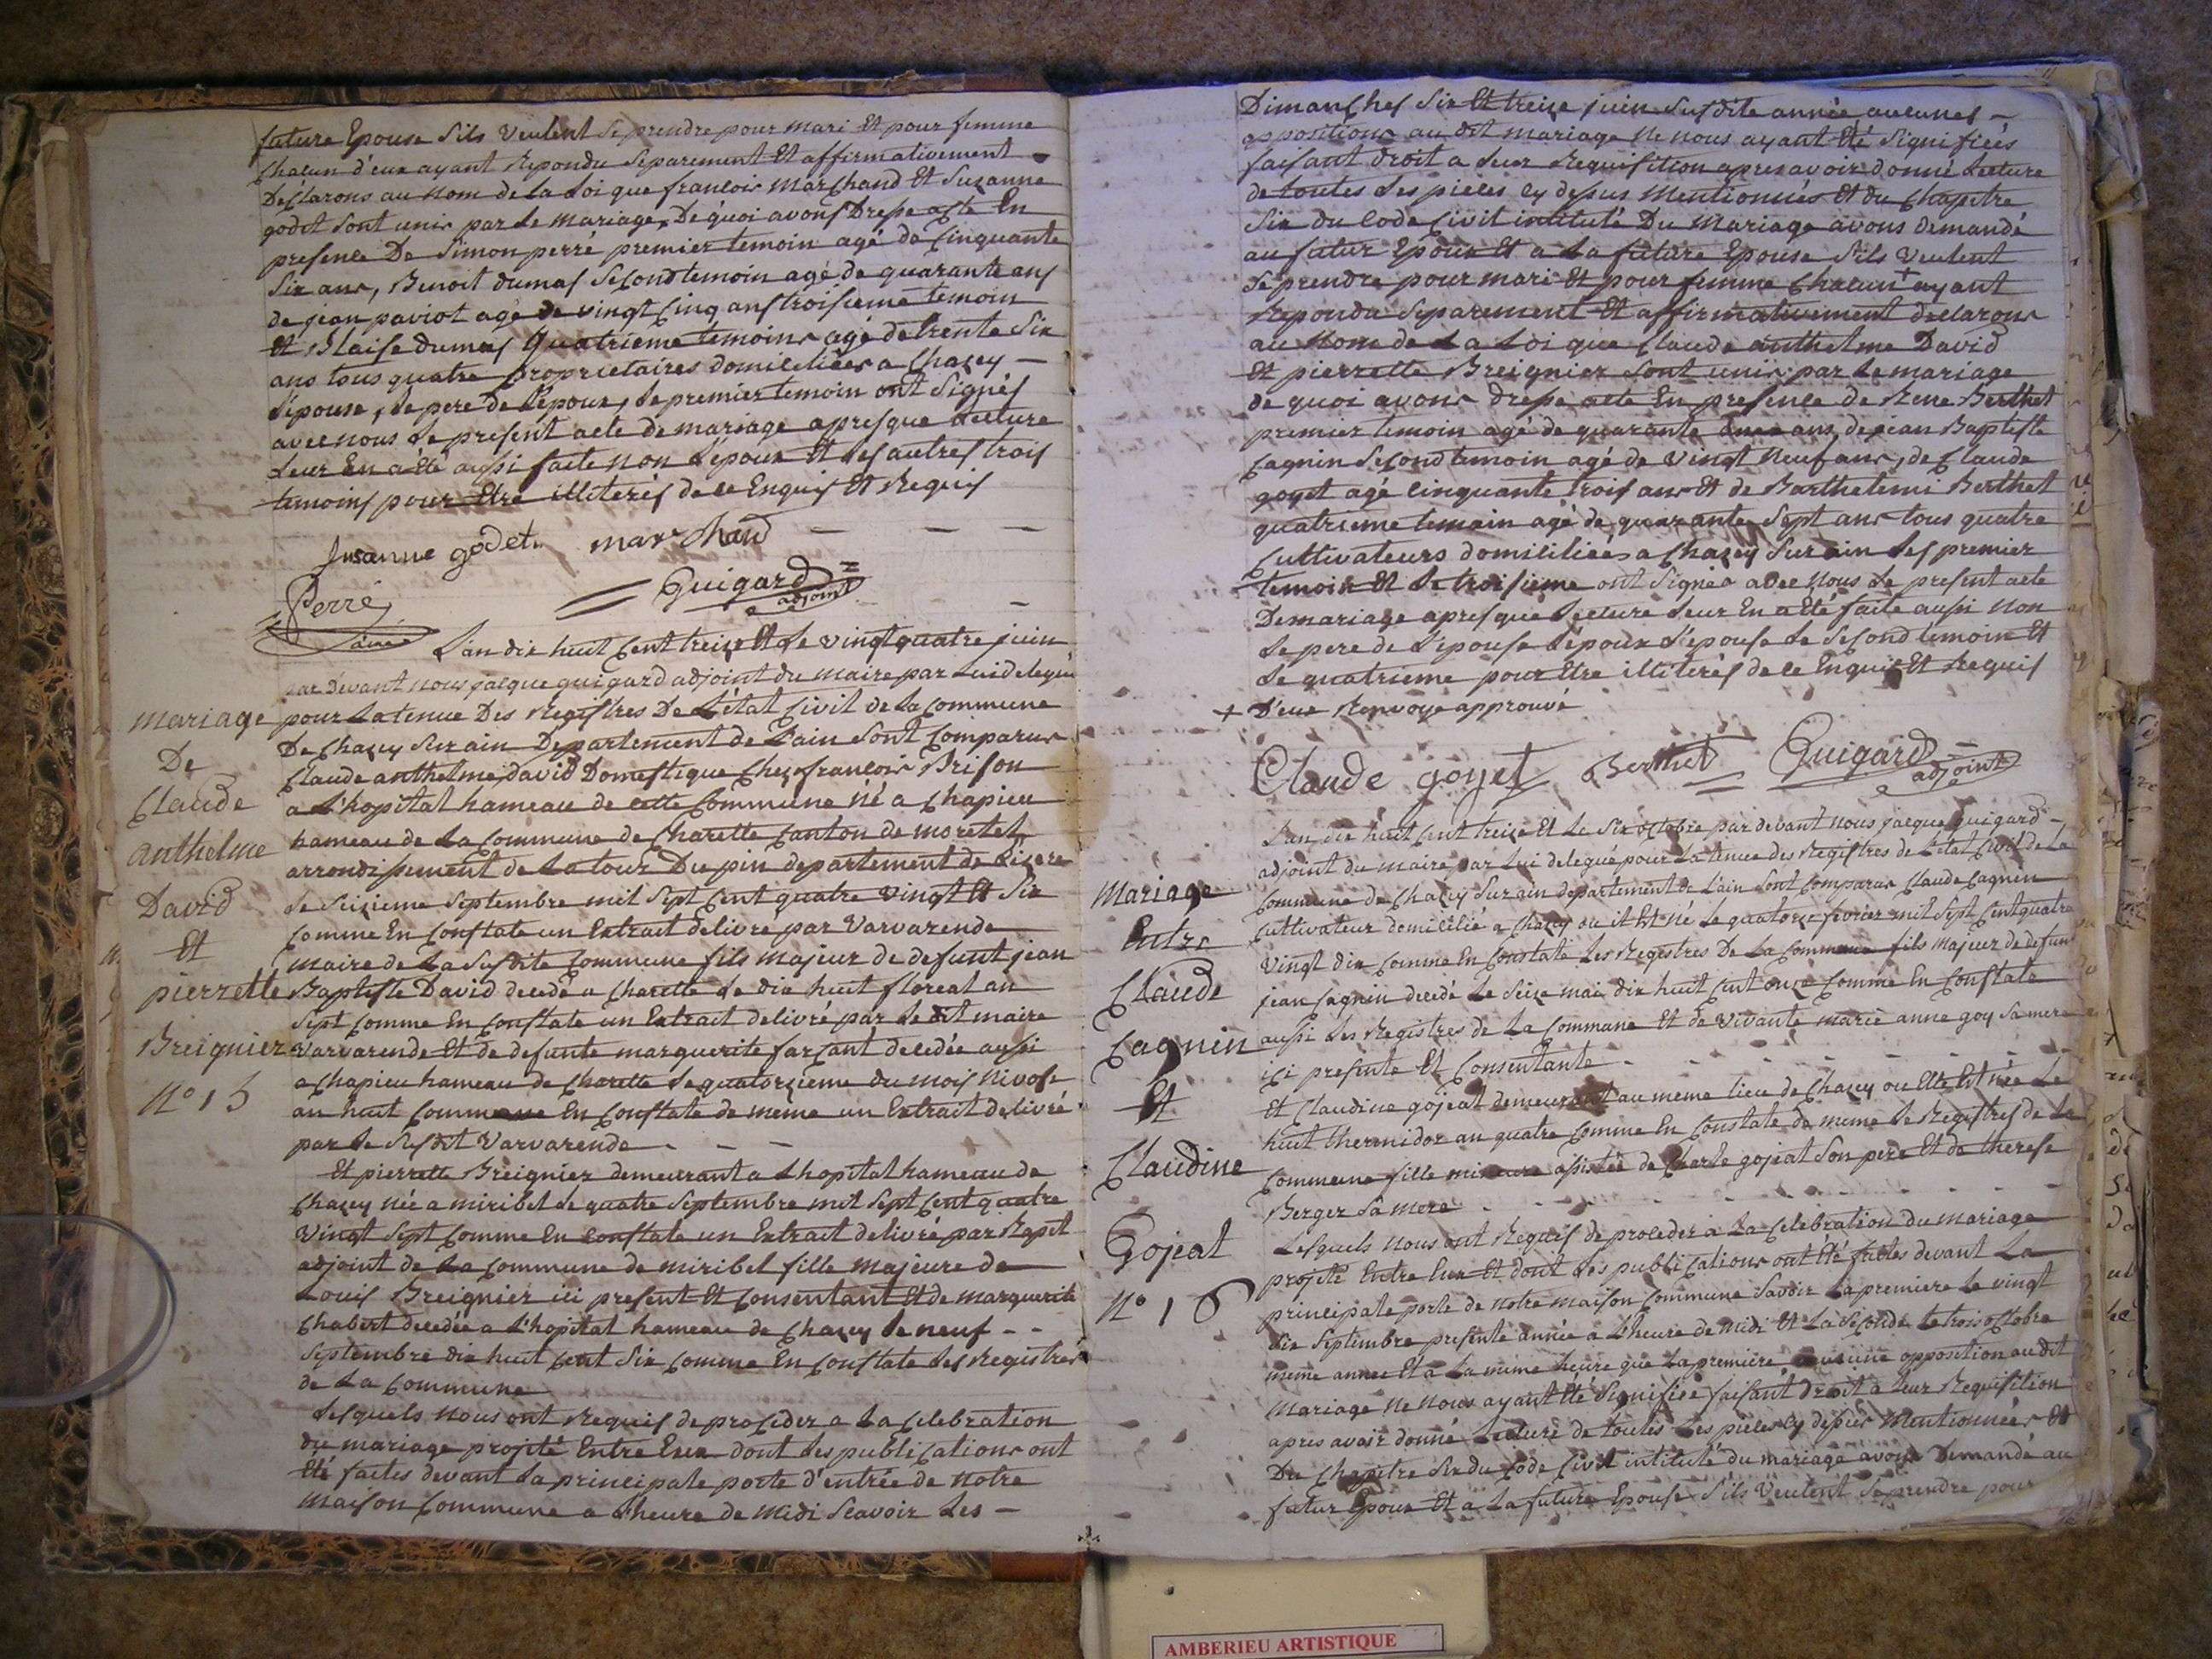 future Epouse sils veulent se prendre pour mari et pour femme
chacun d'eux ayant Repondu separement Et affirmativement
Déclarons au nom de la Loi que francois marchand Et Suzanne
godet sont unis par le mariage, De quoi avons Dresse acte En
presence De Simon perré premier temoin agé de cinquante
six ans, Benoit dumas second temoin agé de quarante ans
de jean paviot agé de vingt cinq ans troisieme temoin
Et Blaise dumas quatrieme temoins agé de trente six
ans tous quatre proprietaires domiciliées a Chazey —
l'épouse, le pere de l'epoux, le premier temoin ont signés
avec nous le present acte de mariage apresque lecture
leur En a été aussi faite non l'époux Et les autres trois
temoins pour Etre illiterés de ce Enquis Et Requis
Susanne godet marchand — — —
Perré
ainé
Guigard
adjoint
L'an dix huit cent treize Et le vingt quatre juin
par Devant nous jacque guigard adjoint du maire par Lui delegué
mariage
De
Claude
anthelme
David
Et
pierrette
Breignier
N° 15
pour La tenue Des Registres De L'état civil de la Commune
De Chazey sur ain Departement de L'ain sont comparus
Claude anthelme david Domestique Chez francois Brison
a L'hopital hameau de cette Commune né a Chapieu
hameau de La Commune de Charette canton de moretel
arrondissement de Latour Du pin departement de Lizere
Le seizieme septembre mil sept cent quatre vingt Et six
comme En Constate un Extrait delivre par Varvarende
maire de La susdite Commune fils majeur de defunt jean
Baptiste David decedé a Charette le dix huit floreal an
sept comme En Constate un Extrait delivré par le dit maire
varvarende Et de defunte marguerite farçant decedée aussi
a Chapieu hameau de Charette le quatorzieme du mois Nivose
an huit comme En Constate de meme un Extrait delivré
par le susdit Varvarende — — —
Et pierrette Breignier demeurant a L'hopital hameau de
Chazey née a miribel le quatre septembre mil sept cent quatre
vingt sept comme En constate un Extrait delivré par
adjoint de La Commune de miribel fille majeure de
Louis Breignier ici present Et Consentant Et de marguerite
Chabert decedée a L'hopital hameau de Chazey le neuf - -
septembre dix huit cent six comme En Constate les Registres
de La Commune
Lesquels nous ont Requis de proceder a La Celebration
du mariage projeté Entre Eux dont les publications ont
Eté faites devant La principale porte d'entrée de notre
maison Commune a L'heure de midi scavoir les —
Dimanches six Et treize juin susdite année aucunes —
oppositions au dit mariage ne nous ayant Eté signifiées
faisant droit a leur Requisition apres avoir donné lecture
de toutes les pieces cy dessus mentionnées Et du chapitre
six du code civil intitulé Du mariage avons demandé
au futur Epoux Et a La future Epouse s'ils veulent
se prendre pour mari Et pour femme chacun + ayant
Repondu separement Et affirmativement declarons
au Nom de La Loi que Claude anthelme David
Et pierrette Breignier sont unis par le mariage
de quoi avons dresse acte En presence de Rene Berthet
premier temoin agé de quarante ans, de jean Baptiste
Cagnin second temoin agé de vingt neuf ans, de Claude
goyet agé cinquante trois ans Et de Barthelemi Berthet
quatrieme temoin agé de quarante sept ans tous quatre
Cultivateurs domiciliées a Chazey sur ain les premier
temoin Et le troisieme ont signés avec nous le present acte
De mariage apresque lecture leur En a Eté faite aussi non
le pere de l'epouse l'époux l'épouse le second temoin Et
le quatrieme pour Etre illiterés de ce Enquis Et Requis
+ D'eux Renvoye approuvé
Claude goyet Berthet Guigard
adjoint
L'an dix huit cent treize Et le six octobre par devant nous jacque guigard —
adjoint du maire par Lui delegué pour La tenue des Registres de L'etat Civil de La
Mariage
Entre
Claude
Cagnin
Et
Claudine
Gojeat
N° 16
Commune de Chazey sur ain departement de L'ain sont comparus Claude Cagnin
Cultivateur domicilié a Chazey ou il Est né le quatorze fevrier mil sept cent quatre
vingt dix comme En Constate les Registres De La Commune fils majeur de defunt
jean Cagnin decedé le seize mai dix huit cent onze comme En Constate
aussi les Registres de La Commune Et de vivante marie anne goy sa mere
ici presente Et Consentante - - - - -
Et Claudine gojeat demeurant au meme lieu de Chazey ou Elle Est née le
huit thermidor an quatre comme En Constate de meme le Registres de La
Commune fille mineure assistée de Charle gojeat son pere Et de therese
Berger sa mere - - - - - -
Lesquels nous ont Requis de proceder a La Celebration du mariage
projeté Entre Eux Et dont les publications ont Eté faites devant La
principale porte de notre maison Commune Savoir La premiere le vingt
six septembre presente année a L'heure de midi Et La seconde le trois octobre
meme année Et a La meme heure que La premiere, aucune opposition au dit
mariage ne nous ayant Eté signifiée faisant droit a leur Requisition
apres avoir donné Lecture de toutes les pieces cy dessus mentionnées Et
Du Chapitre six du Code Civil intitulé du mariage avons Demandé au
futur Epoux Et a La future Epouse s'ils veulent se prendre pour
AMBERIEU ARTISTIQUE